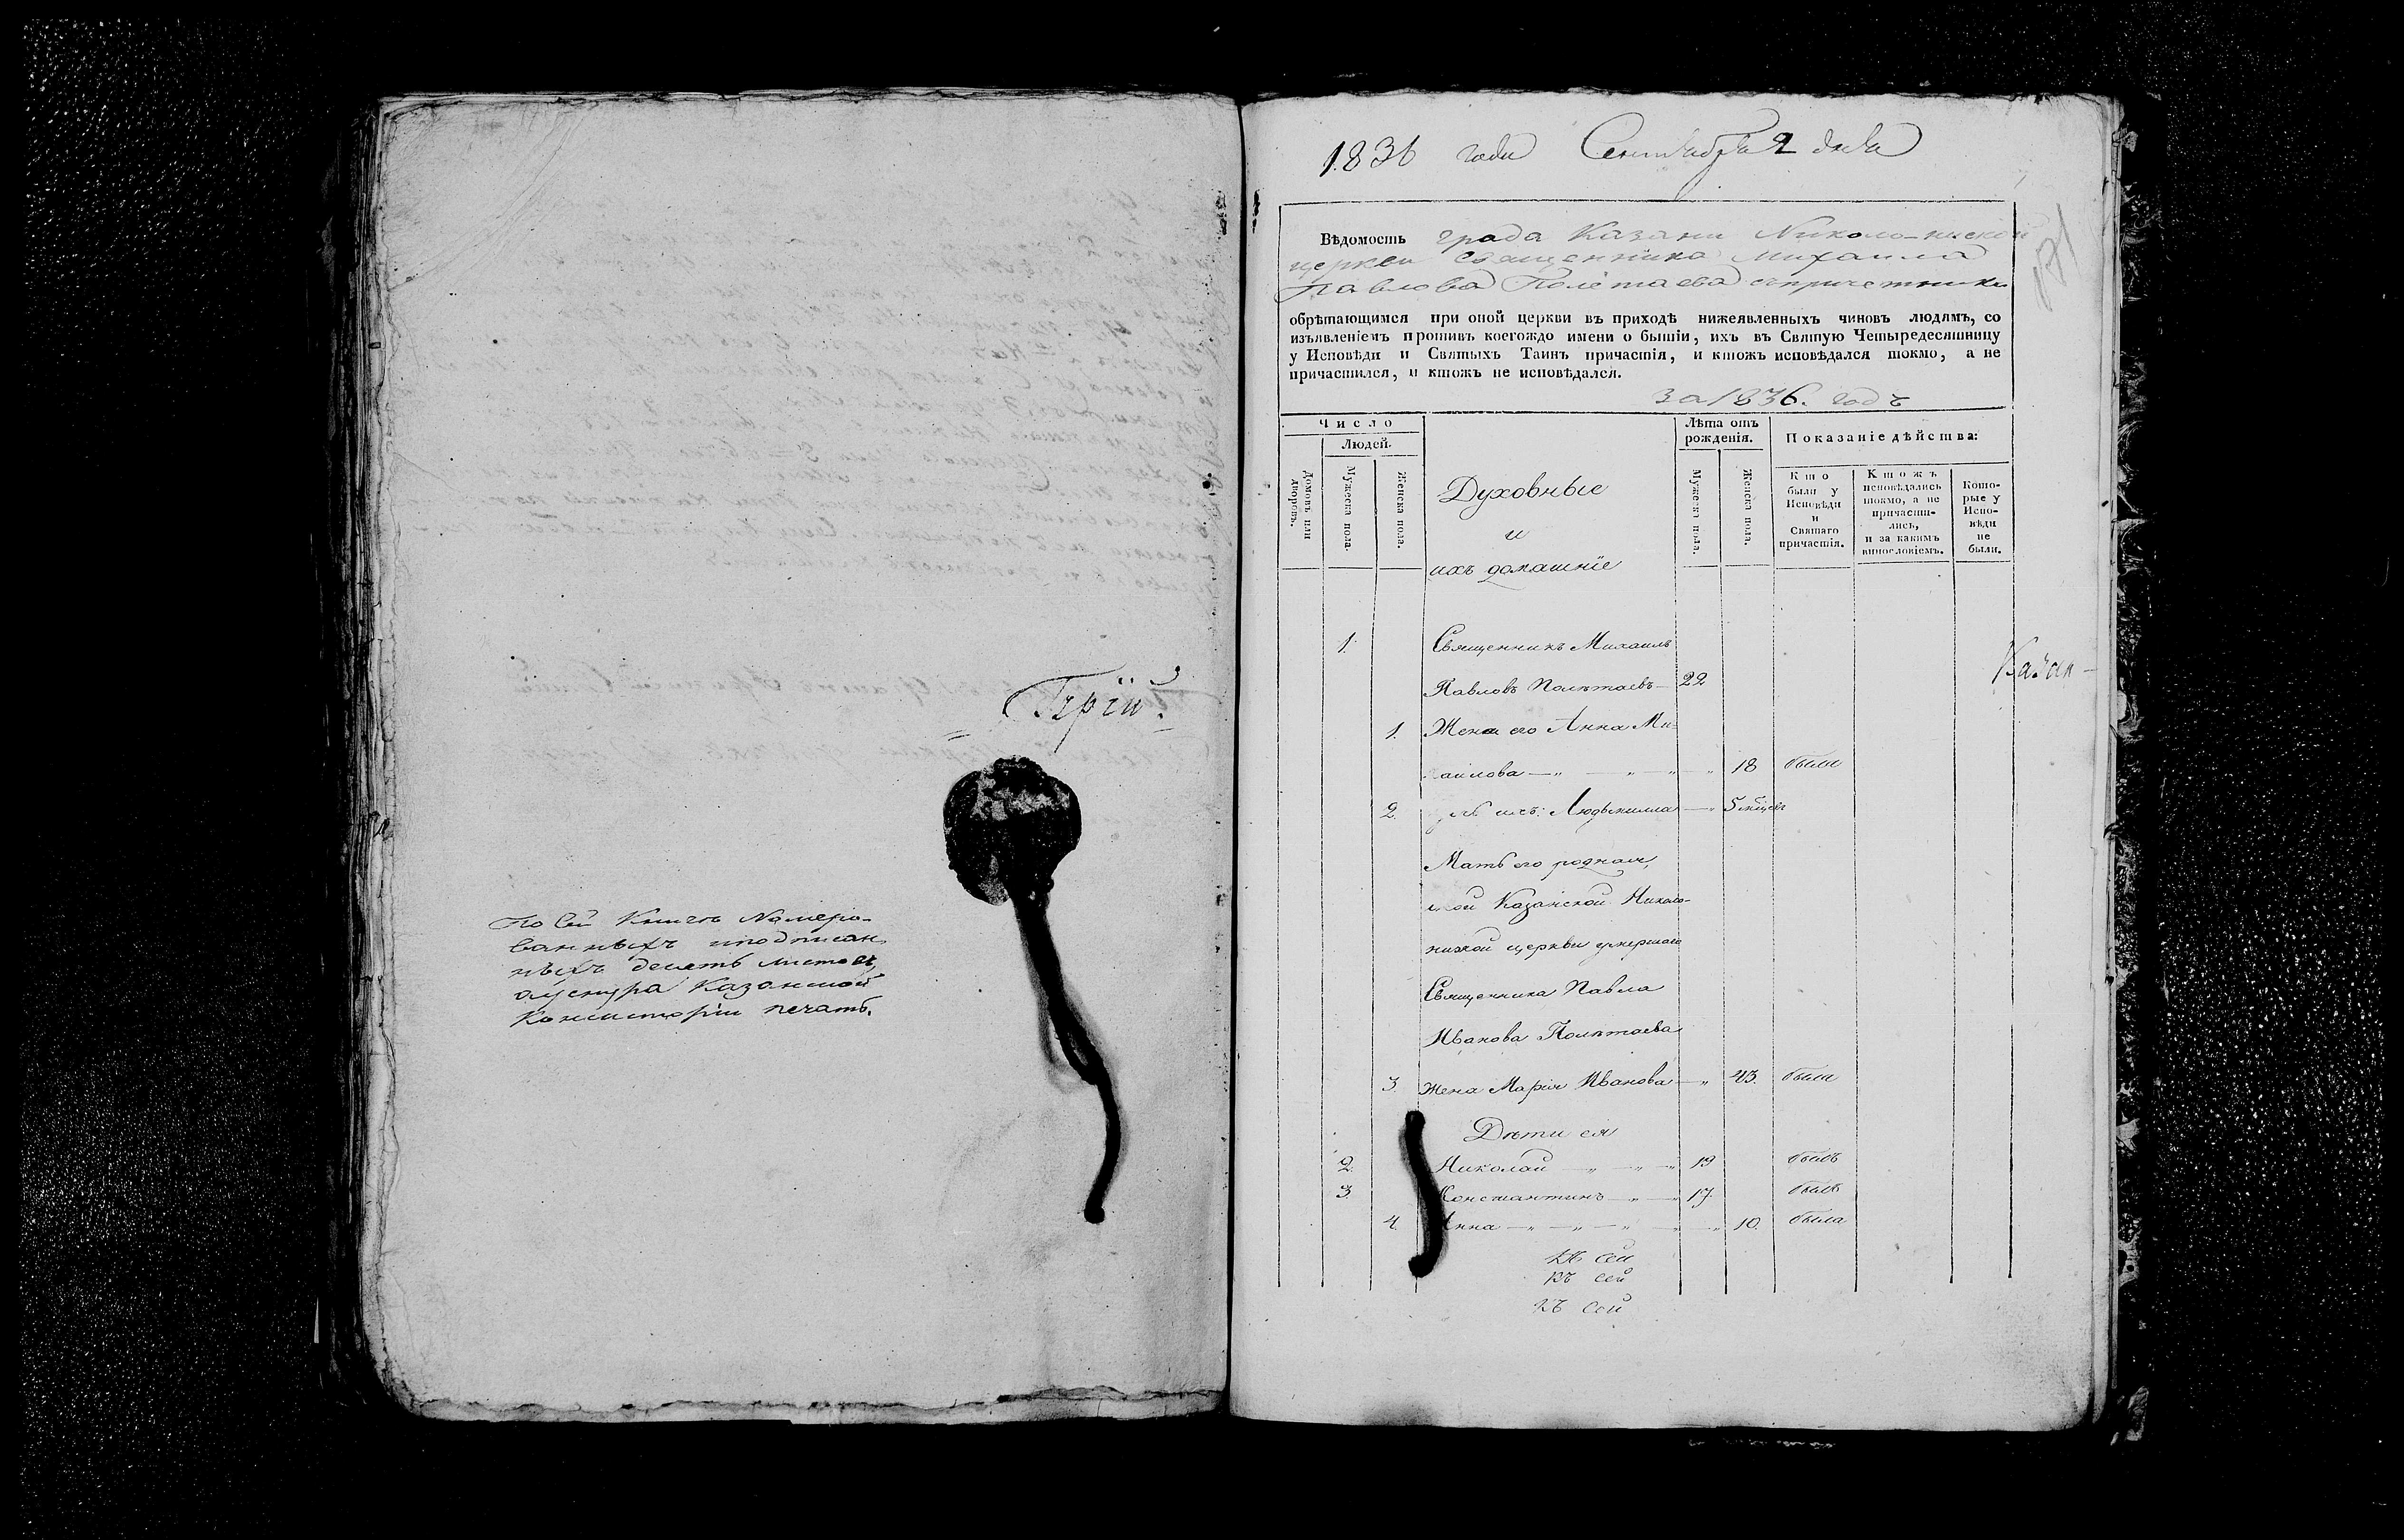 По сей Книгѣ Номеро-
ванныхъ иподписан
ныхъ десять листовъ,
Казанской
Консисторіи печать.
1836 года Сентября 2 дня
Вѣдомость града Казани Николо-низской
церкви Священника Михаила
Павлова Полетаева съпричетники
обрѣтающимся при оной церкви въ приходѣ нижеявленныхъ чиновъ людямъ, со
изъявленіемъ противъ коегождо имени о бытіи, ихъ въ Святую Четыредесятницу
у Исповѣди и Святыхъ Таинъ причастія, и ктожъ исповѣдался токмо, а не
причастился, и ктожъ не исповѣдался.
за 1836. годъ
Число
Людей.
Домовъ или дворовъ.
Мужеска пола.
Женска пола.
Духовные
и
ихъ домашніе
Лѣта отъ
рожденія.
Мужеска пола.
Женска пола.
Показаніе дѣйства:
Кто
были у
Исповѣди
и
Святаго
причастія.
Ктожъ
исповѣдались
токмо, а не
причасти-
лись,
и за какимъ
винословіемъ.
Кото-
рые у
Испо-
вѣди
не
были.
1. Священникъ Михаилъ
Павловъ Полѣтаевъ — 22
Казан-
1. Жена его Анна Ми
аилова — „ — „ — „ 18 были
2. ихъ: Людьмилла — „ 5 мѣсяц
Мать его родная,
Казанской Николо-
низкой церкви умершаго
Священника Павла
Иванова Полѣтаева
3. Жена Марія Иванова — „ 43. были
Дѣти ея
2. Николай — „ — „ — „ 19 былъ
3 Константинъ — „ — „ 17. былъ
4. Анна — „ — „ — „ — „ 10. была
къ сей
къ сей
къ сей